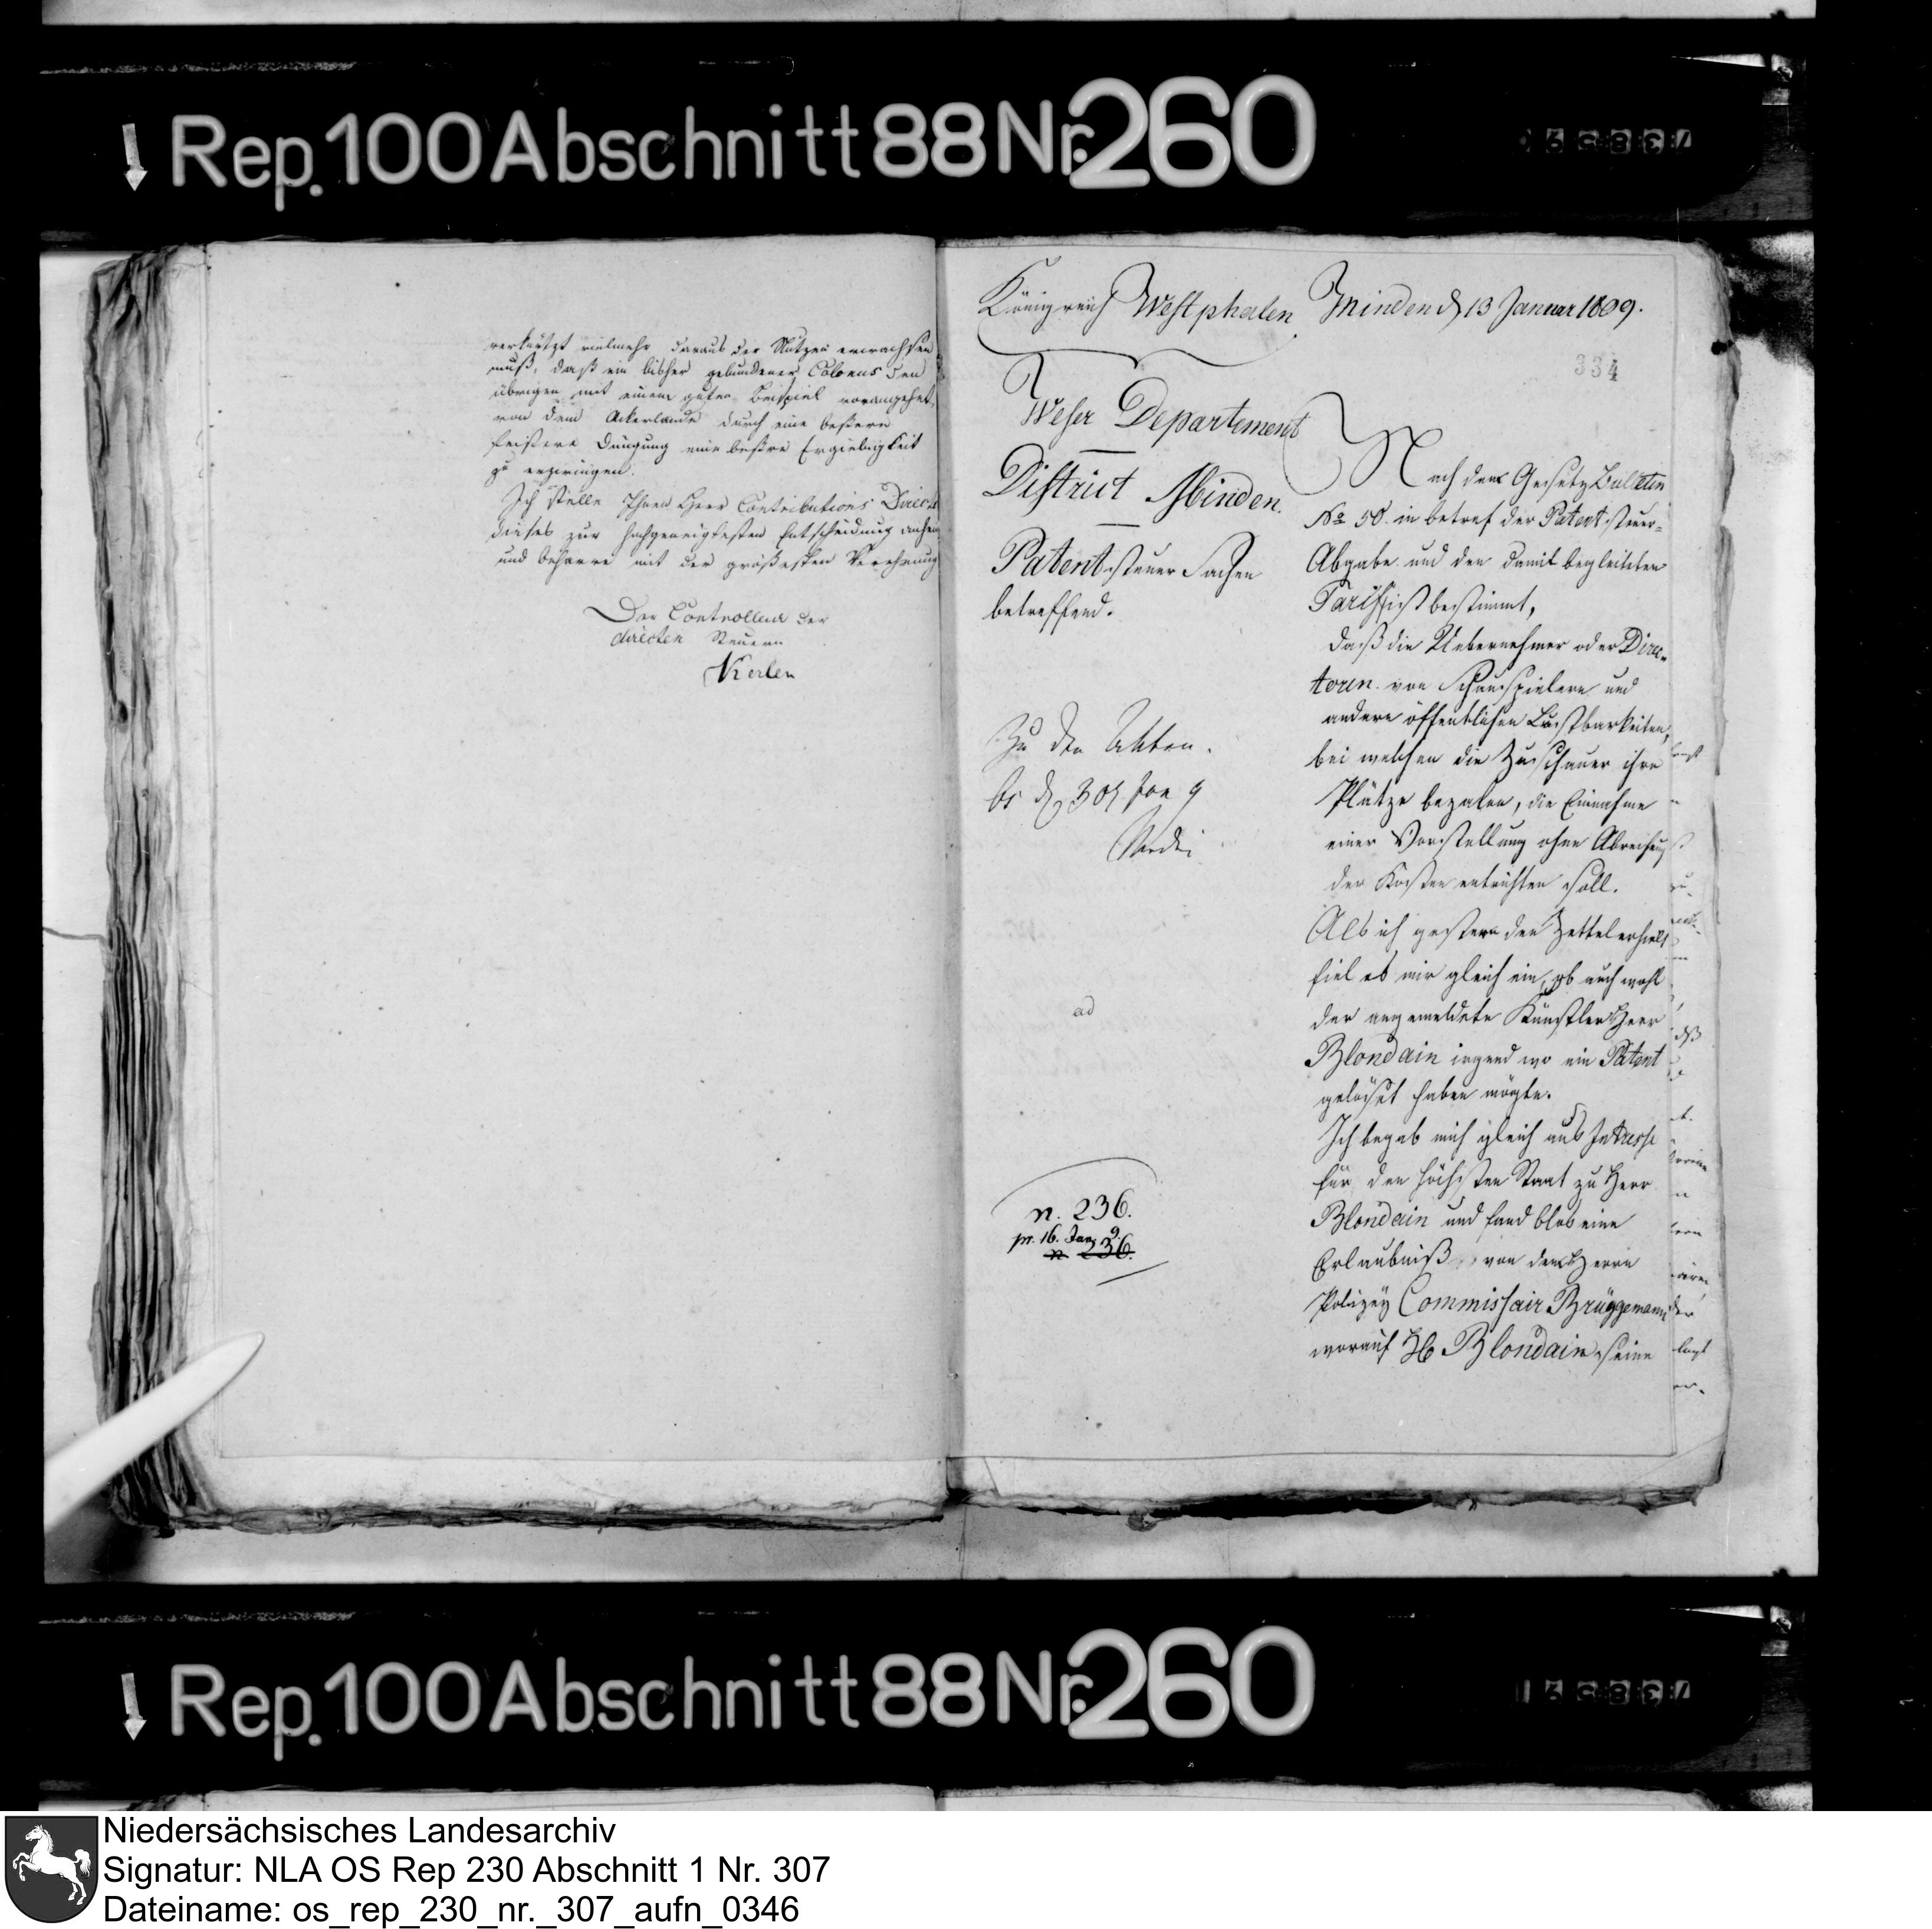 Rep. 100 Abschnitt 88 Nr. 260
verkürzt vielmehr daraus der Nutzen erwachsen
muß, daß ein bisher gebundener Colonus den
übrigen mit einem guten Beispiel vorangehet,
von dem Ackerlande durch eine bessere
feistere Düngung eine bessre Ergiebigkeit
zu erzwingen.
Ich stelle Ihnen Herr Contributions Direct
dieses zur hochgeneigtesten Entscheidung anheim
und beharre mit der größesten Verehrung
Der Controlleur der
directen Steuern
Kerlen
Königreich Westphalen
Minden d 13 Januar 1809.
334
Weser Departement
District Minden.
Patentsteuer Sachen
betreffend.
Zu den Akten.
d 30t Jan 9
ad
n. 236.
pr. 16. Jan. 9.
n 236.
Nach dem Gesetz Bulletin
No 50. in betref der Patentsteuer-
Abgabe und den damit begleiteten
Tarif ist bestimmt,
daß die Uebernehmer oder Direc-
toren von Schauspielern und
andere öffentlichen Lustbarkeiten,
bei welchen die Zuschauer ihre
Plätze bezalen, die Einnahme
einer Vorstellung ohne Abreichung
der Kosten entrichten soll.
Als ich gestern den Zettel erhielt
fiel es mir gleich ein, ob auch wohl
der angemeldete Künstler Herr
Blondain irgend wo ein Patent
gelöset haben mögte.
Ich begab mich gleich aus Intresse
für den höchsten Staat zu Herr
Blondain und fand blos eine
Erlaubniß von dem Herrn
Polizey Commissair Brüggemann
worauf H Blondain seine
Rep. 100 Abschnitt 88 Nr. 260
Niedersächsisches Landesarchiv
Signatur: NLA OS Rep 230 Abschnitt 1 Nr. 307
Dateiname: os_rep_230_nr._307_aufn_0346